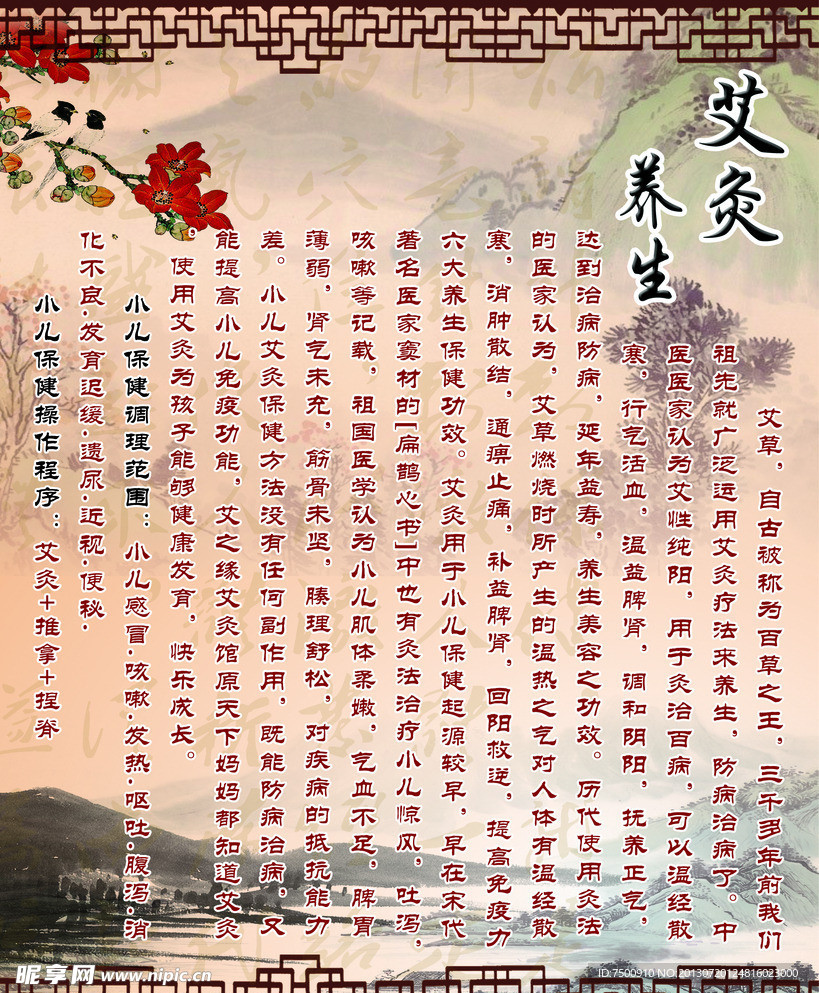 艾灸
养生
艾草，自古被称为百草之王，三千多年前我们
祖先就广泛运用艾灸疗法来养生，防病治病了。中
医医家认为艾性纯阳，用于灸治百病，可以温经散
寒，行气活血，温益脾肾，调和阴阳，抚养正气，
达到治病防病，延年益寿，养生美容之功效。历代使用灸法
的医家认为，艾草燃烧时所产生的温热之气对人体有温经散
寒，消肿散结，通痹止痛，补益脾肾，回阳救逆，提高免疫力
六大养生保健功效。艾灸用于小儿保健起源较早，早在宋代
著名医家窦材的[扁鹊心书]中也有灸法治疗小儿惊风，吐泻，
咳嗽等记载，祖国医学认为小儿肌体柔嫩，气血不足，脾胃
薄弱，肾气未充，筋骨未坚，腠理舒松，对疾病的抵抗能力
差。小儿艾灸保健方法没有任何副作用，既能防病治病，又
能提高小儿免疫功能，艾之缘艾灸馆原天下妈妈都知道艾灸
，使用艾灸为孩子能够健康发育，快乐成长。
小儿保健调理范围：小儿感冒·咳嗽·发热·呕吐·腹泻·消
化不良·发育迟缓·遗尿·近视·便秘·
小儿保健操作程序：艾灸+推拿+捏脊
昵享网 www.nipic.cn
ID:7500910 NO.20130720124816023000